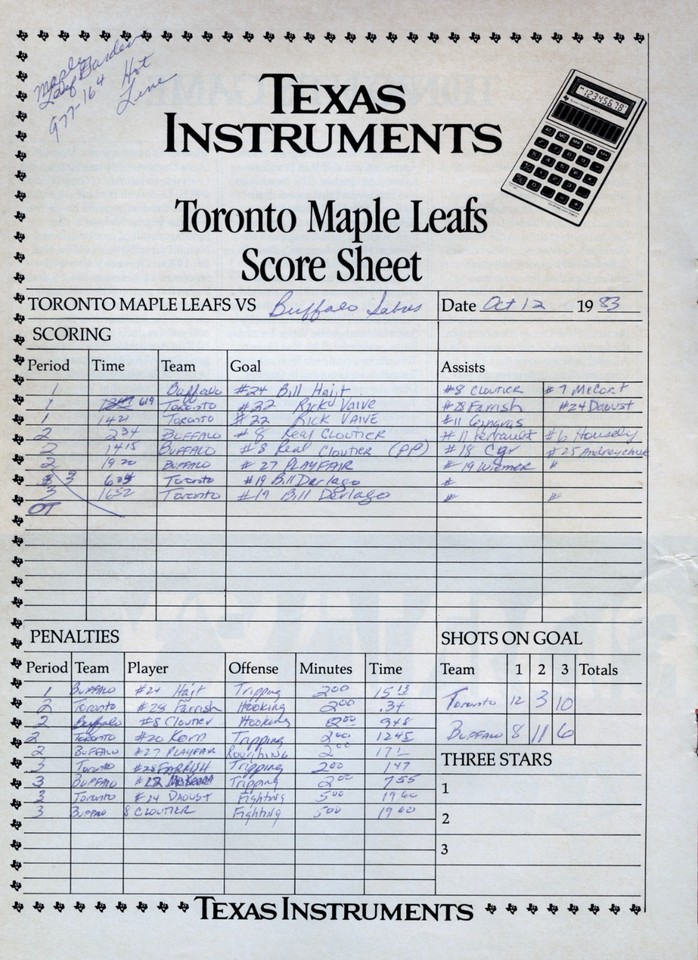 Maple
Leaf Garden Hot
977-164 Line
12345678
TEXAS
INSTRUMENTS
Toronto Maple Leafs
Score Sheet
TORONTO MAPLE LEAFS VS Buffalo Sabres Date Oct 12 19 83
SCORING
Period Time Team Goal Assists
1 Buffalo #24 Bill Hajt #8 CLOUTIER #7 McCourt
1 619 Toronto #22 Rick VAIVE #28 Farrish #24 Daoust
1 1421 Toronto #22 RICK VAIVE #11 Gingras
2 234 BUFFALO #8 Real CLOUTIER #11 Perrault #6 Housely
2 1415 BUFFALO #8 Real Cloutier (PP) #18 Cyr #25 Andreychuk
2 1920 BUFFALO #27 PLAYFAIR #19 Wiemer "
3 Toronto #19 Bill Derlago #
3 1652 Toronto #19 Bill Derlago " "
OT
PENALTIES SHOTS ON GOAL
Period Team Player Offense Minutes Time Team 1 2 3 Totals
1 BUFFALO #24 Hajt Tripping 200 1513
2 Toronto #28 Farrish Hooking 2:00 .34 Toronto 12 3 10
2 Buffalo #8 Cloutier Hooking 2:00 948
2 Toronto #20 Korn Tripping 2:00 1245 BUFFALO 8 11 6
2 BUFFALO #27 PLAYFAIR Roughing 2:00
3 Toronto #28 FARRISH Tripping 200 147 THREE STARS
3 BUFFALO Tripping 200 755 1
3 Toronto #24 DAOUST Fighting 500 1900 2
3 Buffalo 8 CLOUTIER Fighting 500 1900
3
TEXAS INSTRUMENTS